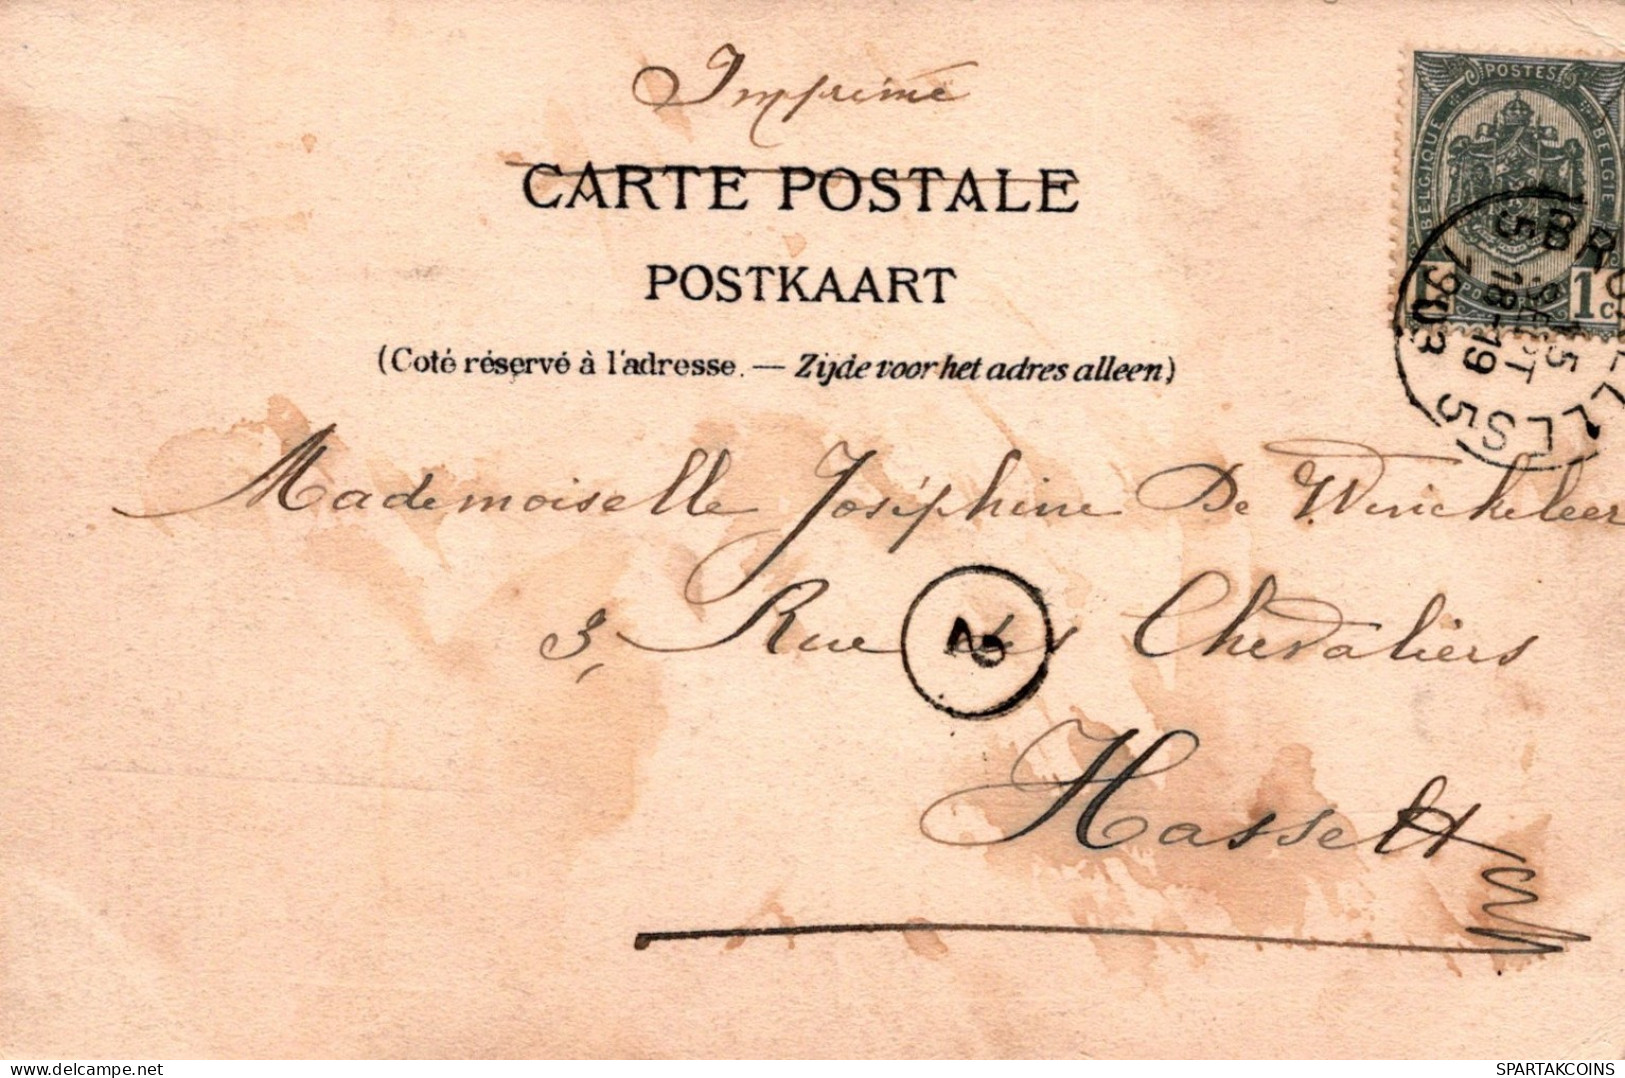 Imprimé
CARTE POSTALE
POSTKAART
(Coté réservé à l'adresse. — Zijde voor het adres alleen)
POSTES
BELGIQUE BELGIE
1 1c
BRUXELLES 5
5
15
SEPT
18-19
1903
Mademoiselle Joséphine De Winckeleer
3, Rue des Chevaliers
2
Hasselt
delcampe.net
SPARTAKCOINS